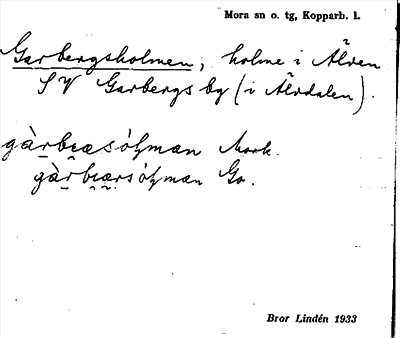 Mora sn o. tg, Kopparb. l.
Garbergsholmen, holme i Älven
SV Garbergs by (i Älvdalen).
gàr̠bɛ̯æsóɫman Mork.
gàr̠bɛ̯ærsóɫman Go.
Bror Lindén 1933